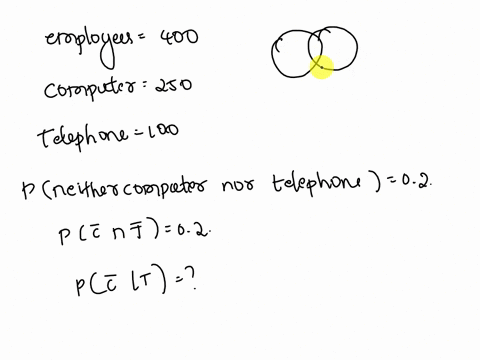 employees = 400
computer = 250
Telephone = 100
P(neither computer nor telephone) = 0.2.
P(C̄ ∩ T̄) = 0.2.
P(C̄ | T) = ?